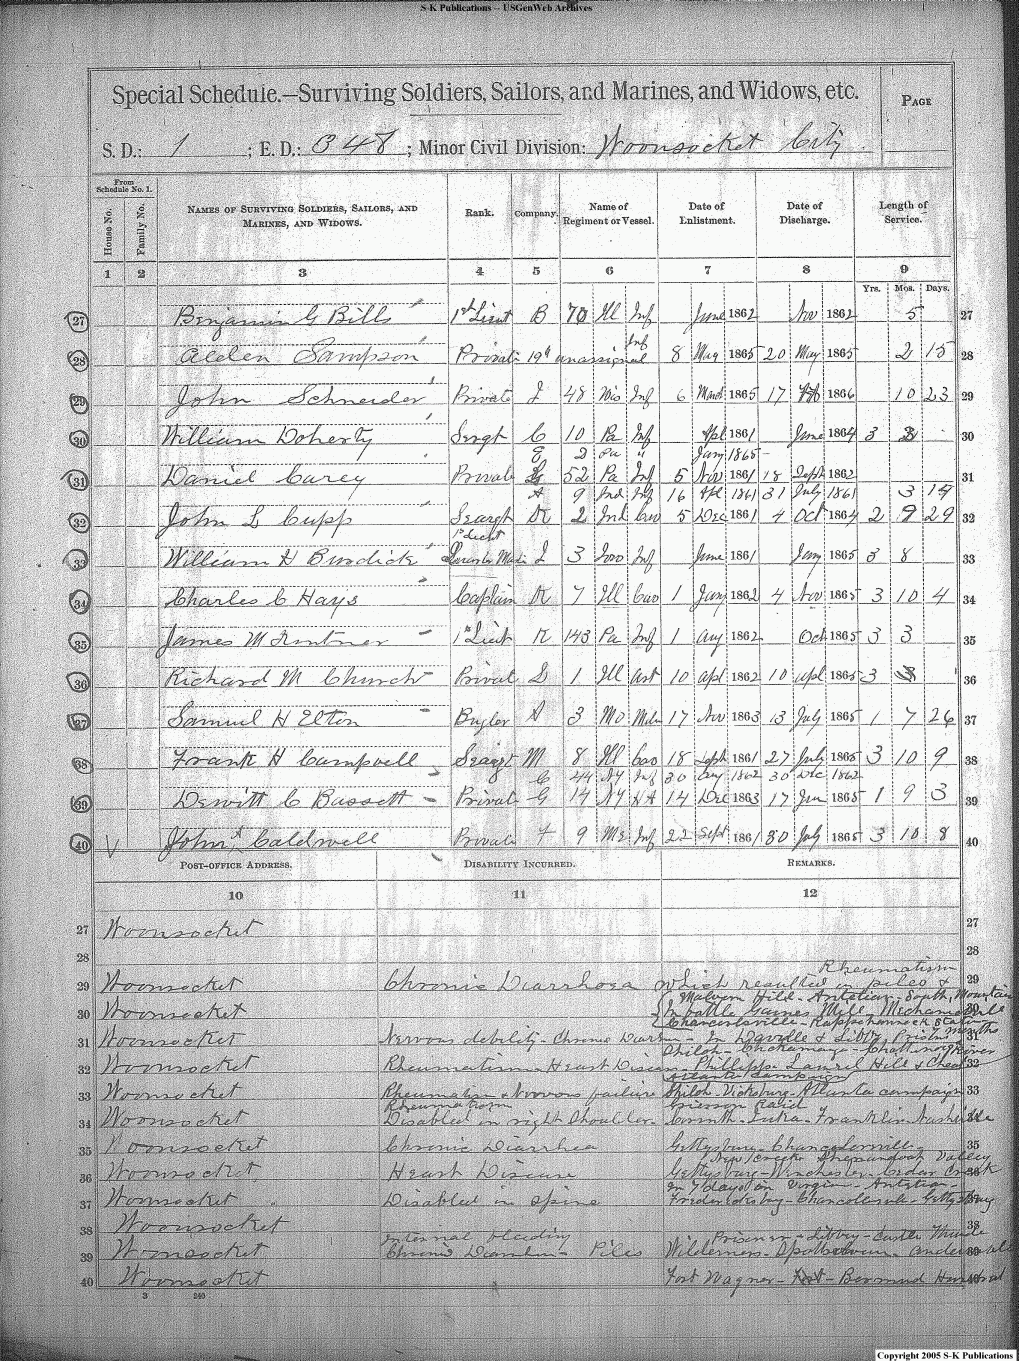 S-K Publications -- USGenWeb Archives
Special Schedule.—Surviving Soldiers, Sailors, and Marines, and Widows, etc.
PAGE
S. D.: 1 ; E. D.: 348 ; Minor Civil Division: Woonsocket City
From Schedule No. 1.
House No. Family No. NAMES OF SURVIVING SOLDIERS, SAILORS, AND MARINES, AND WIDOWS. Rank. Company. Name of Regiment or Vessel. Date of Enlistment. Date of Discharge. Length of Service.
1 2 3 4 5 6 7 8 9
Yrs. Mos. Days.
27 Benjamin G Bills 1st Lieut B 70 Ill Inf June 1862 Nov 1862 5 27
Inf
28 Alden Sampson Private 19th unassigned 8 Mag 1865 20 May 1865 2 15 28
29 John Schneider Private I 48 Wis Inf 6 March 1865 17 Feb 1866 10 23 29
30 William Doherty Sergt C 10 Pa Inf Apl 1861 June 1864 3 30
E 2 Pa " Jany 1865
31 Daniel Carey Private 52 Pa Inf 5 Nov 1861 18 Sept 1862 31
A 9 Ind Inf 16 Apl 1861 31 July 1861 3 14
32 John L Cupp Seargt K 2 Ind Cav 5 Dec 1861 4 Oct 1864 2 9 29 32
1st Lieut
33 William H Burdick I 3 Iowa Inf June 1861 Jany 1865 3 8 33
34 Charles C Hays Captain K 7 Ill Cav 1 Jany 1862 4 Nov 1865 3 10 4 34
35 James M Kintner 1st Lieut K 143 Pa Inf 1 Aug 1862 Oct 1865 3 3 35
36 Richard M Church Private L 1 Ill Art 10 apl 1862 10 apl 1865 3 36
37 Samuel H Elton Bugler A 3 Mo Mil 17 Nov 1863 13 July 1865 1 7 26 37
38 Frank H Campbell Seargt M 8 Ill Cav 18 Sept 1861 27 July 1865 3 10 9 38
C 44 NY Inf 30 Aug 1862 30 Dec 1862
39 Dewitt C Bassett Private G 14 NY HA 14 Dec 1863 17 Jun 1865 1 9 3 39
40 John A Caldwell Private 9 Me Inf 22 Sept 1861 30 July 1865 3 10 8 40
POST-OFFICE ADDRESS. DISABILITY INCURRED. REMARKS.
10 11 12
27 Woonsocket 27
28 28
Rheumatism
29 Woonsocket Chronic Diarrhoea which resulted in piles & 29
Malvern Hill - Antietam - South Mountain
30 Woonsocket In battle Gaines Mill, Mechanicsville
Chancelorsville - Rappahannock Station
31 Woonsocket Nervous debility - Chronic Diarrh - In Danville & Libby Prison Months
Shiloh - Chickamauga - Chattanooga
32 Woonsocket Rheumatism Heart Disease Phillippi Laurel Hill & Cheat River 32
Atlanta Campaign
33 Woonsocket Rheumatism & Nervous failure Shiloh - Vicksburg - Atlanta campaign 33
Rheumatism Grierson Raid
34 Woonsocket Disabled in right Shoulder Corinth - Iuka - Franklin - Nashville
35 Woonsocket Chronic Diarrhea Gettysburg - Chancelorville 35
New Creek Shenandoah Valley
36 Woonsocket Heart Disease Gettysburg - Winchester - Cedar Creek
In 7 days in Virginia - Antietam -
37 Woonsocket Disabled in Spine Fredericksburg - Chancelorsvile - Gettysburg
38 Woonsocket 38
Internal bleeding Prisoner - Libby - Castle Thunder
39 Woonsocket Chronic Diarrhea - Piles Wilderness - Spottsylvania
40 Woonsocket Fort Wagner - Bermuda Hundred
3 240
Copyright 2005 S-K Publications